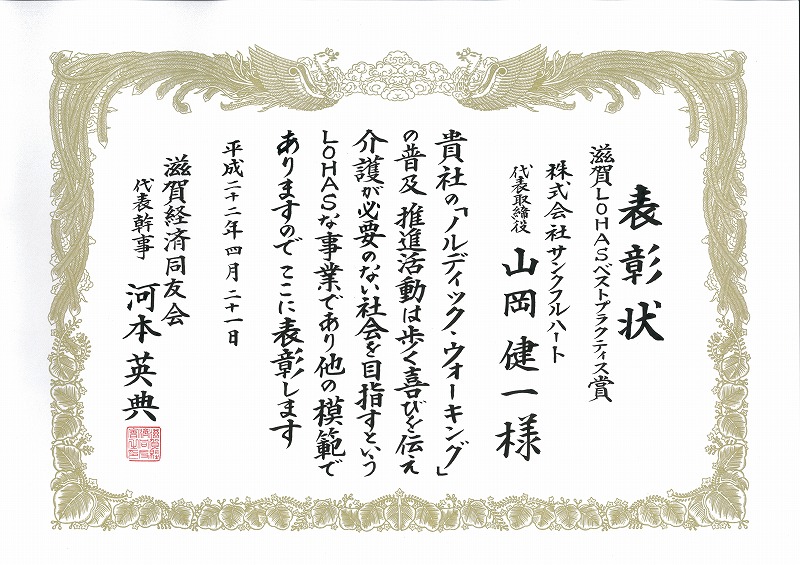 表彰状
滋賀LOHASベストプラクティス賞
株式会社サンクフルハート
代表取締役 山岡健一様
貴社の「ノルディック・ウォーキング」
の普及 推進活動は歩く喜びを伝え
介護が必要のない社会を目指すという
LOHASな事業であり他の模範で
ありますので ここに表彰します
平成二十二年四月二十一日
滋賀経済同友会
代表幹事 河本英典